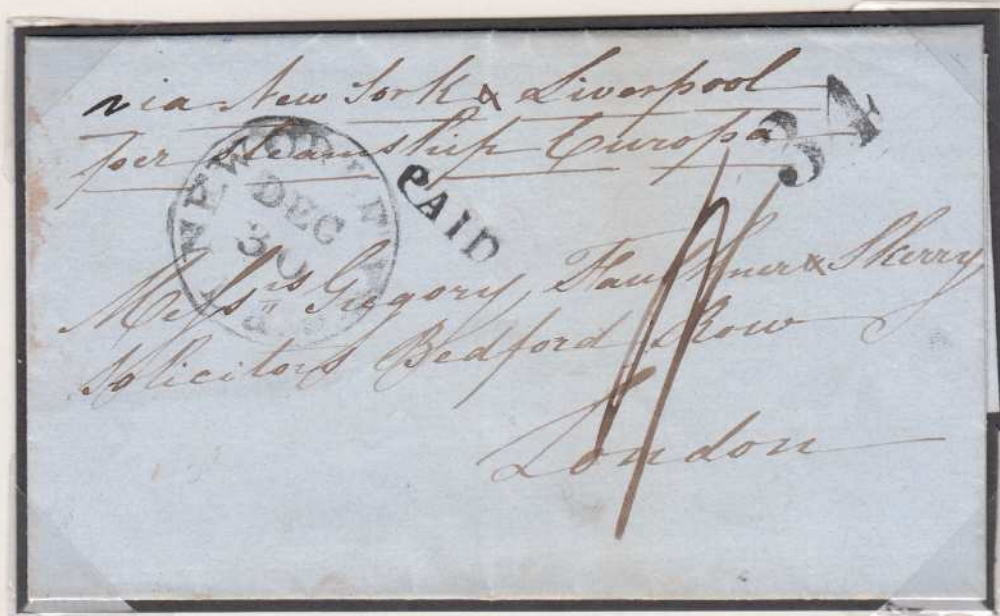 via New York & Liverpool
per steamship Europa
34
PAID
NEW ORLEANS
DEC
30
LA
Messrs Gregory, Faulkner & Skerry
Solicitors Bedford Row
London